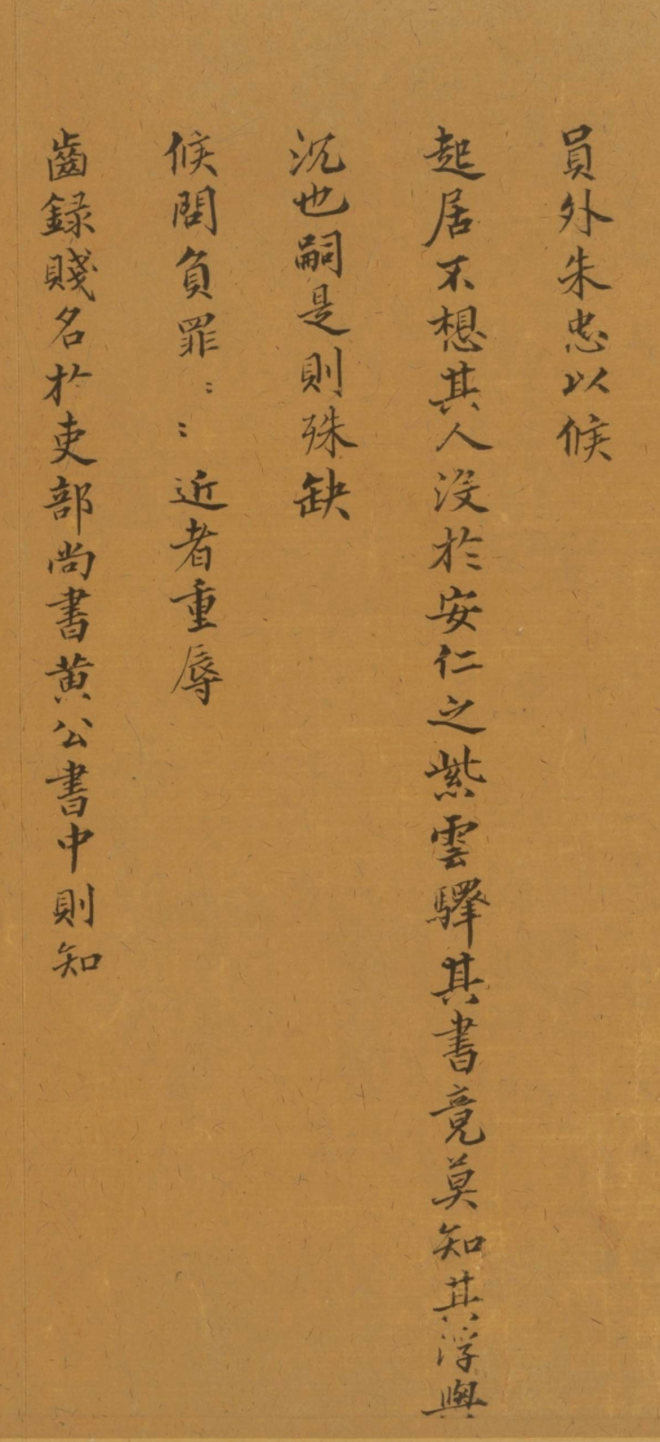 員外朱忠以候
起居不想其人没於安仁之紫雲驛其書竟莫知其浮與
沉也嗣是則殊缺
候問負罪〻〻近者重辱
齒録賤名於吏部尚書黄公書中則知